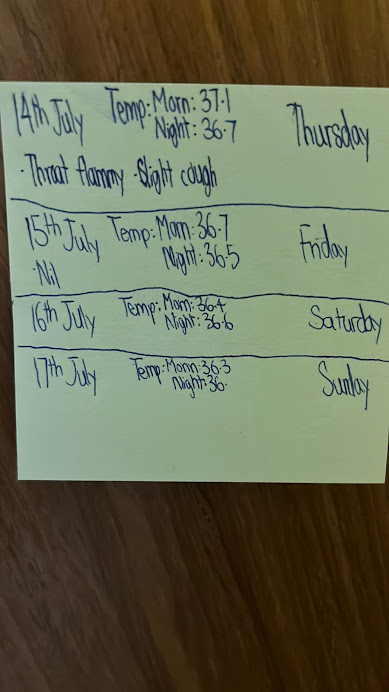 14th July Temp: Morn: 37.1 Thursday
Night: 36.7
· Throat flammy · Slight cough
15th July Temp: Morn: 36.7 Friday
Night: 36.5
· Nil
16th July Temp: Morn: 36.4 Saturday
Night: 36.6
17th July Temp: Morn: 36.3 Sunday
Night: 36.